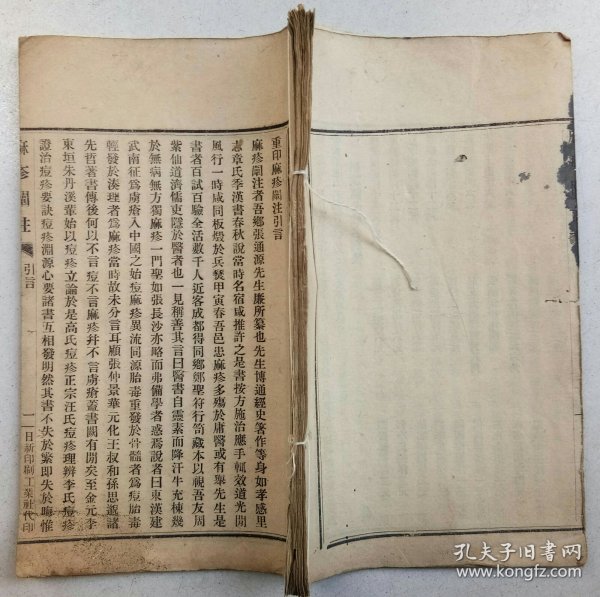 重印麻疹闡注引言
麻疹闡注者吾鄉張通源先生廉所纂也先生博通經史箸作等身如孝感里
志章氏季漢書春秋說當時名宿咸推許之是書按方施治應手輒效道光開
風行一時咸同板燬於兵燹甲寅春吾邑患麻疹多殤於庸醫或有舉先生是
書者百試百驗全活數千人近客成都得同鄉鄭聖符行笥藏本以視吾友周
紫仙道濟儒吏隱於醫者也一見稱善其言曰醫書自靈素而降汗牛充棟幾
於無病無方獨麻疹一門聖如張長沙亦略而弗備學者惑焉說者曰東漢建
武南征爲虜瘡入中國之始痘麻疹異流同源胎毒重發於骨髓者爲痘胎毒
輕發於湊理者爲麻疹當時故未分言耳顧張仲景華元化王叔和孫思邈諸
先哲著書傳後何以不言痘不言麻疹幷不言虜瘡蓋書闕有間矣至金元李
東垣朱丹溪輩始以痘疹立論於是高氏痘疹正宗汪氏痘疹理辨李氏痘疹
證治痘疹要訣痘疹淵源心要諸書互相發明然其書不失於繁卽失於晦惟
麻疹闡注
引言
一
日新印刷工業社代印
孔夫子旧书网
www.kongfz.com